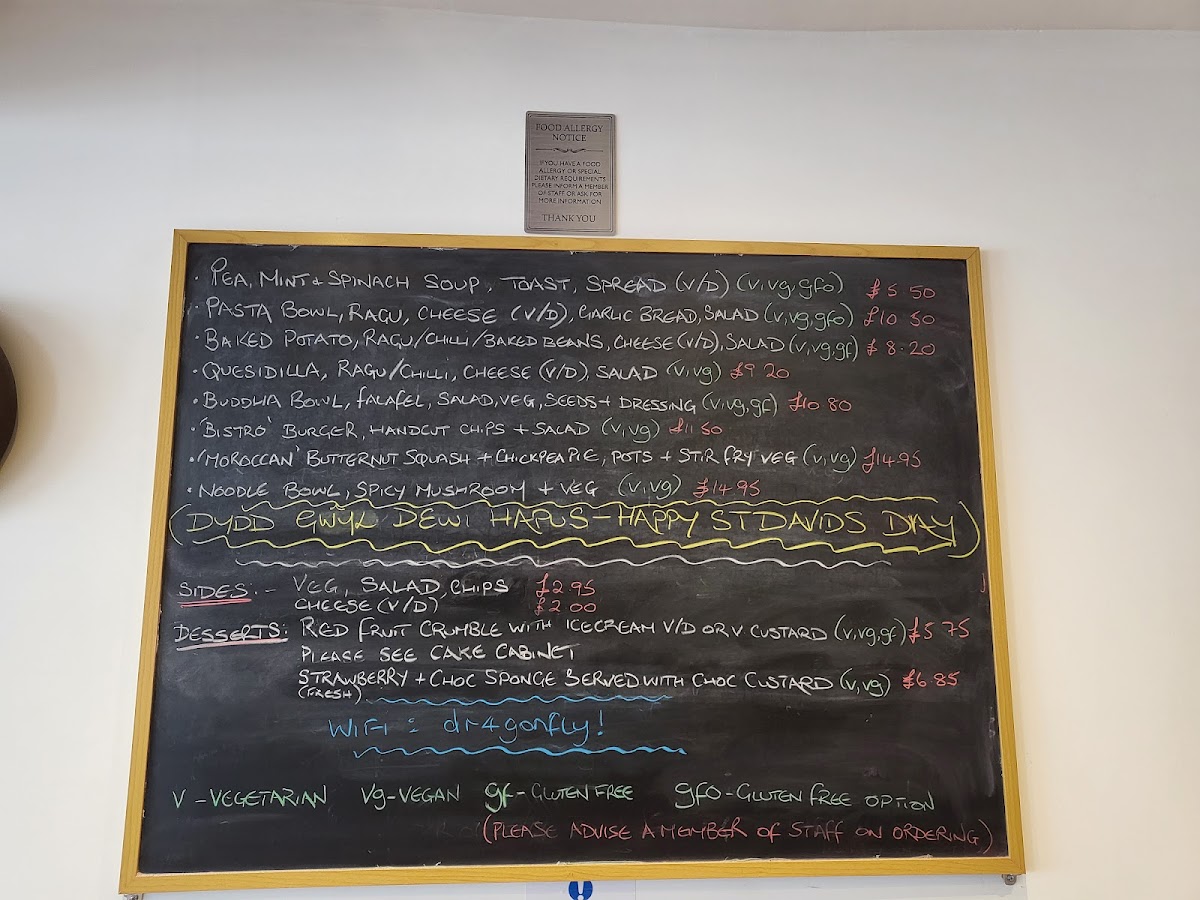 FOOD ALLERGY
NOTICE
IF YOU HAVE A FOOD
ALLERGY OR SPECIAL
DIETARY REQUIREMENTS
PLEASE INFORM A MEMBER
OF STAFF OR ASK FOR
MORE INFORMATION
THANK YOU
· PEA, MINT + SPINACH SOUP, TOAST, SPREAD (V/D) (v,vg,gfo) £5 50
· PASTA BOWL, RAGU, CHEESE (V/D), GARLIC BREAD, SALAD (v,vg,gfo) £10 50
· BAKED POTATO, RAGU/CHILLI/BAKED BEANS, CHEESE (V/D), SALAD (v,vg,gf) £8.20
· QUESIDILLA, RAGU/CHILLI, CHEESE (V/D), SALAD (v,vg) £9 20
· BUDDHA BOWL, FALAFEL, SALAD, VEG, SEEDS + DRESSING (v,vg,gf) £10 80
· 'BISTRO' BURGER, HANDCUT CHIPS + SALAD (v,vg) £11 50
· 'MOROCCAN' BUTTERNUT SQUASH + CHICKPEA PIE, POTS + STIR FRY VEG (v,vg) £14.95
· NOODLE BOWL, SPICY MUSHROOM + VEG (v,vg) £14.95
(DYDD GWYL DEWI HAPUS - HAPPY ST DAVIDS DAY)
SIDES:- VEG, SALAD, CHIPS £2 95
CHEESE (V/D) £2 00
DESSERTS: RED FRUIT CRUMBLE WITH ICECREAM V/D OR V CUSTARD (v,vg,gf) £5 75
PLEASE SEE CAKE CABINET
STRAWBERRY + CHOC SPONGE SERVED WITH CHOC CUSTARD (v,vg) £6 85
(FRESH)
WIFI : dr4gonfly!
V - VEGETARIAN Vg - VEGAN gf - GLUTEN FREE gfo - GLUTEN FREE OPTION
(PLEASE ADVISE A MEMBER OF STAFF ON ORDERING)